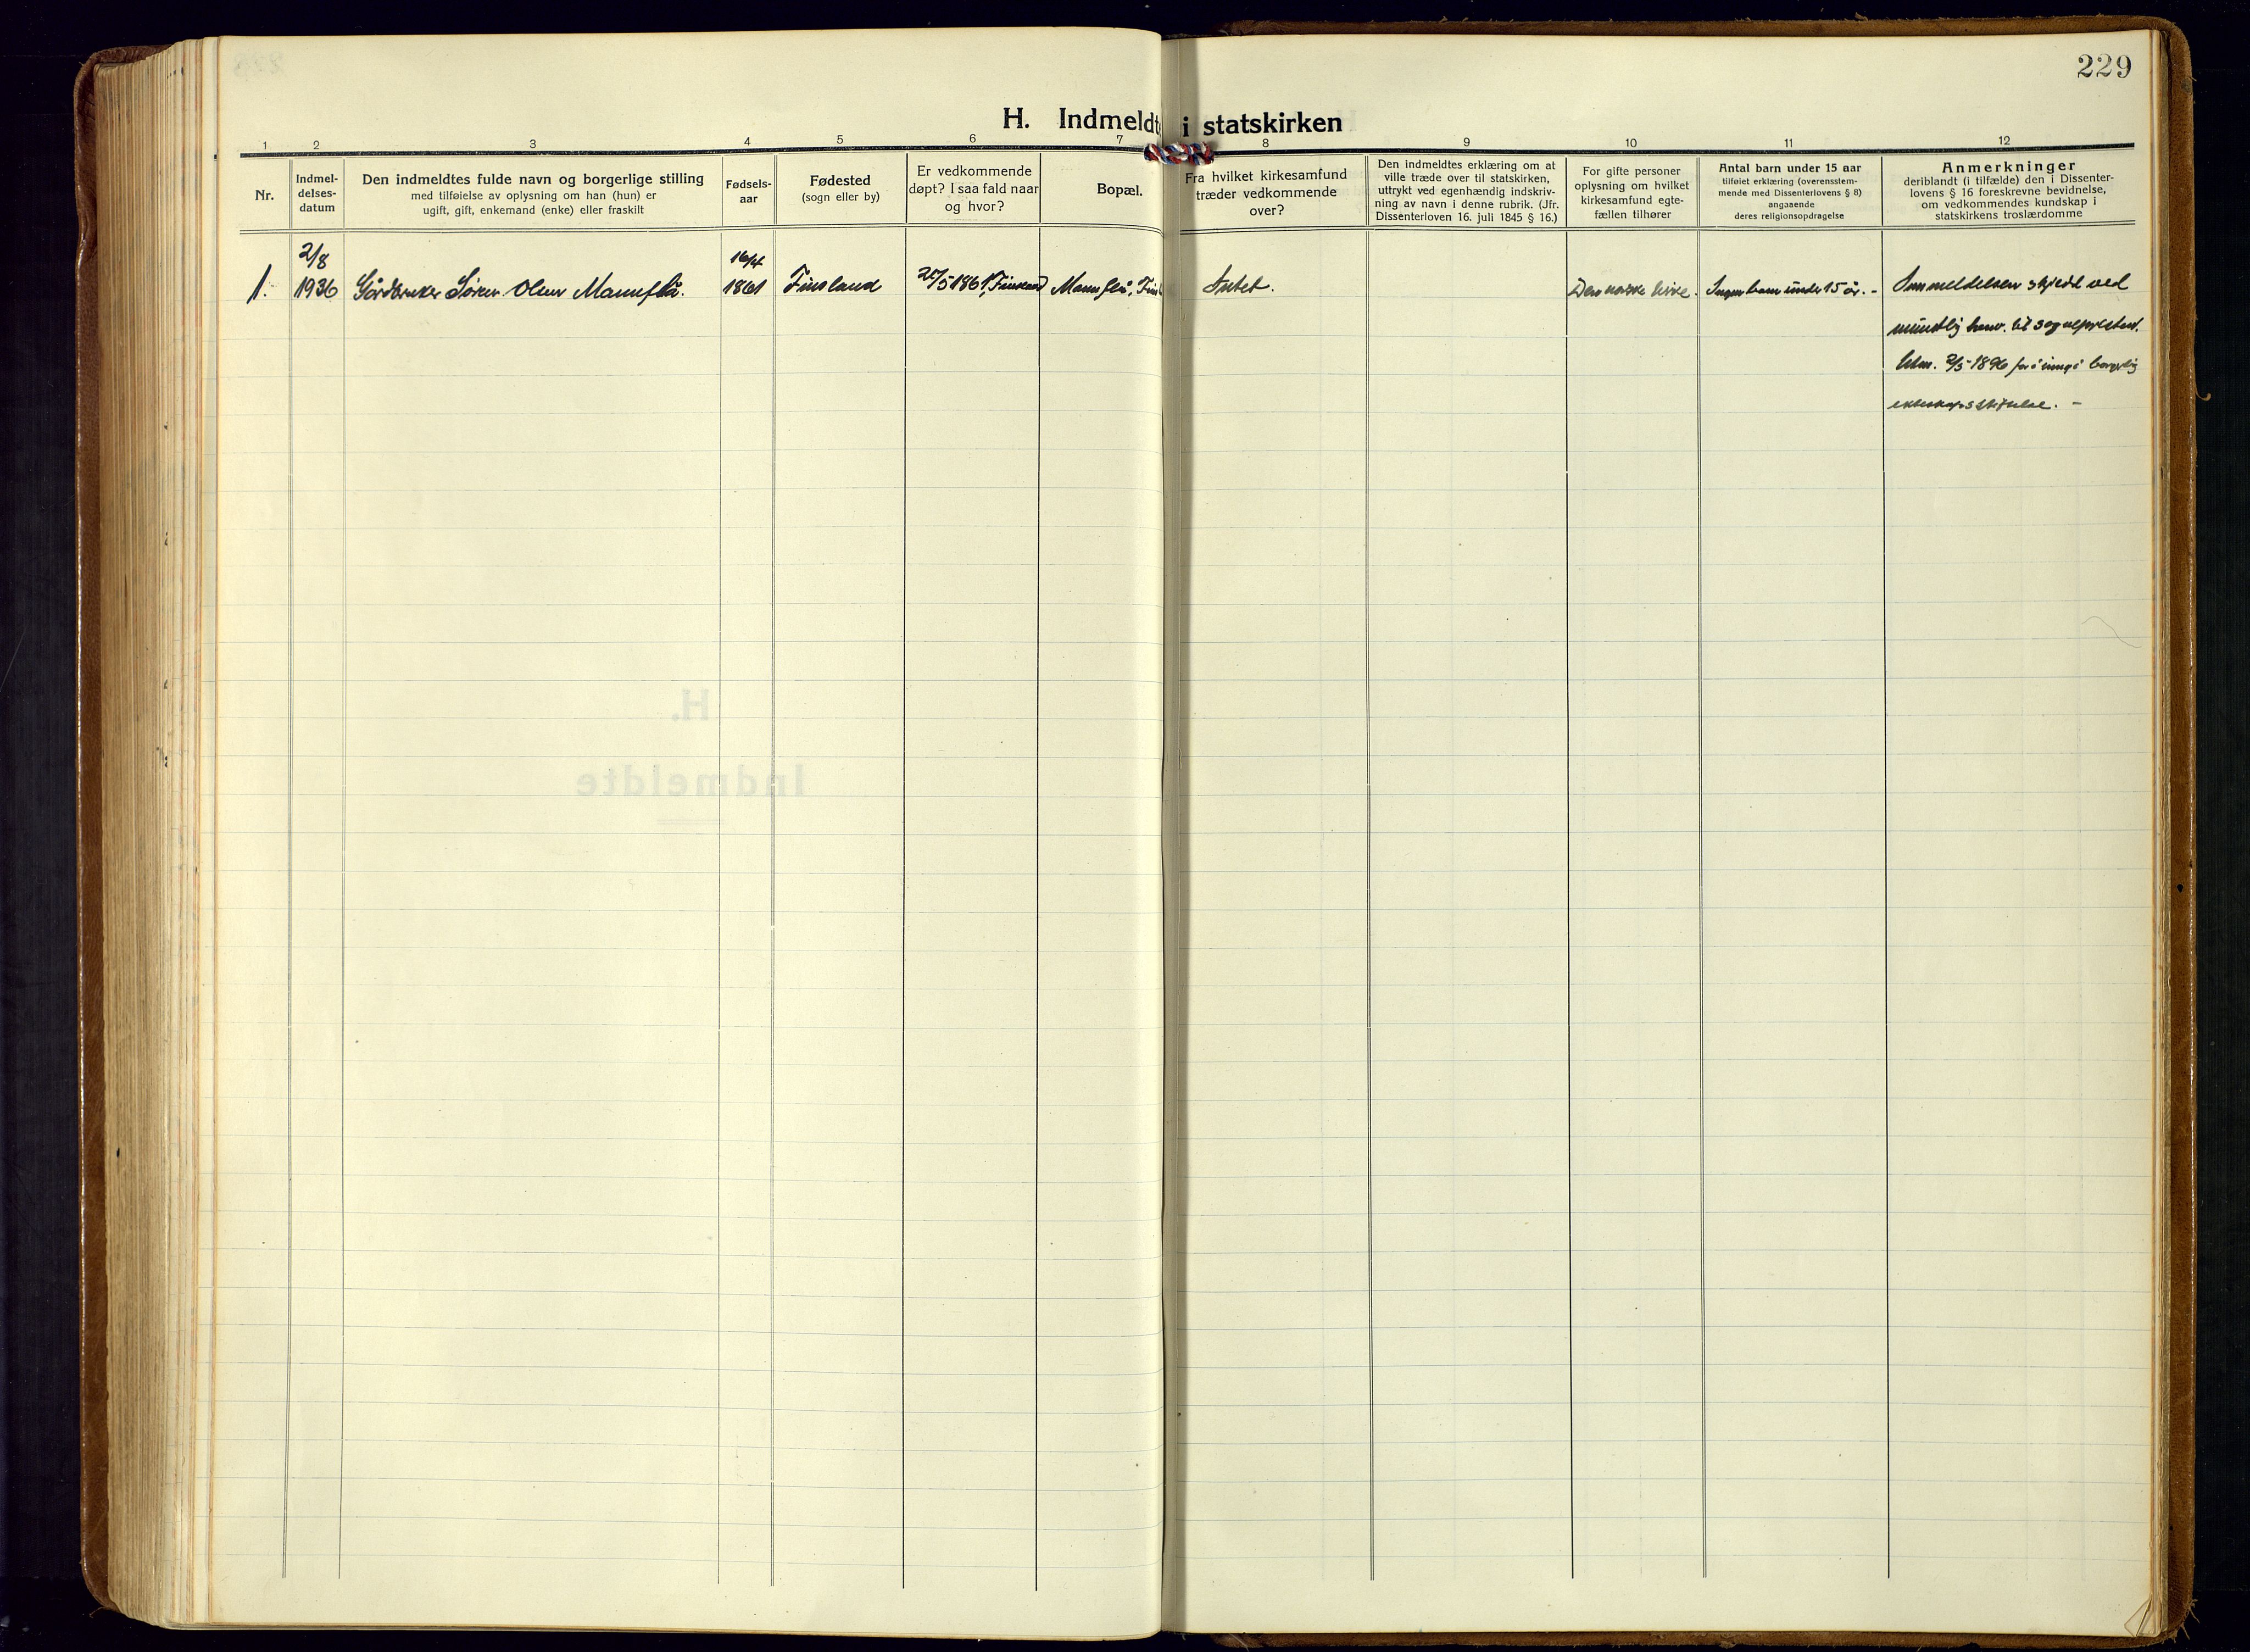 229
H. Indmeldte i statskirken
1 2 3 4 5 6 7 8 9 10 11 12
Nr.
Indmel-
delses-
datum
Den indmeldtes fulde navn og borgerlige stilling
med tilføielse av oplysning om han (hun) er
ugift, gift, enkemand (enke) eller fraskilt
Fødsels-
aar
Fødested
(sogn eller by)
Er vedkommende
døpt? I saa fald naar
og hvor?
Bopæl.
Fra hvilket kirkesamfund
træder vedkommende
over?
Den indmeldtes erklæring om at
ville træde over til statskirken,
uttrykt ved egenhændig indskriv-
ning av navn i denne rubrik. (Jfr.
Dissenterloven 16. juli 1845 § 16.)
For gifte personer
oplysning om hvilket
kirkesamfund egte-
fællen tilhører
Antal barn under 15 aar
tilføiet erklæring (overensstem-
mende med Dissenterlovens § 8)
angaaende
deres religionsopdragelse
Anmerkninger
deriblandt (i tilfælde) den i Dissenter-
lovens § 16 foreskrevne bevidnelse,
om vedkommendes kundskap i
statskirkens troslærdomme
1.
2/8
1936
Gårdbruker Søren Olsen Mannflå.
16/4
1861
Finsland
1861, Finsland
Mannflå, Fins
Intet.
Den norske kirke.
Ingen barn under 15 år. -
Innmeldelsen skjedde ved
mundtlig henv. til sognepresten.
Utm. 2/5-1896 for å inngå borgerlig
ekteskapsstiftelse. -
H.
Indmeldte